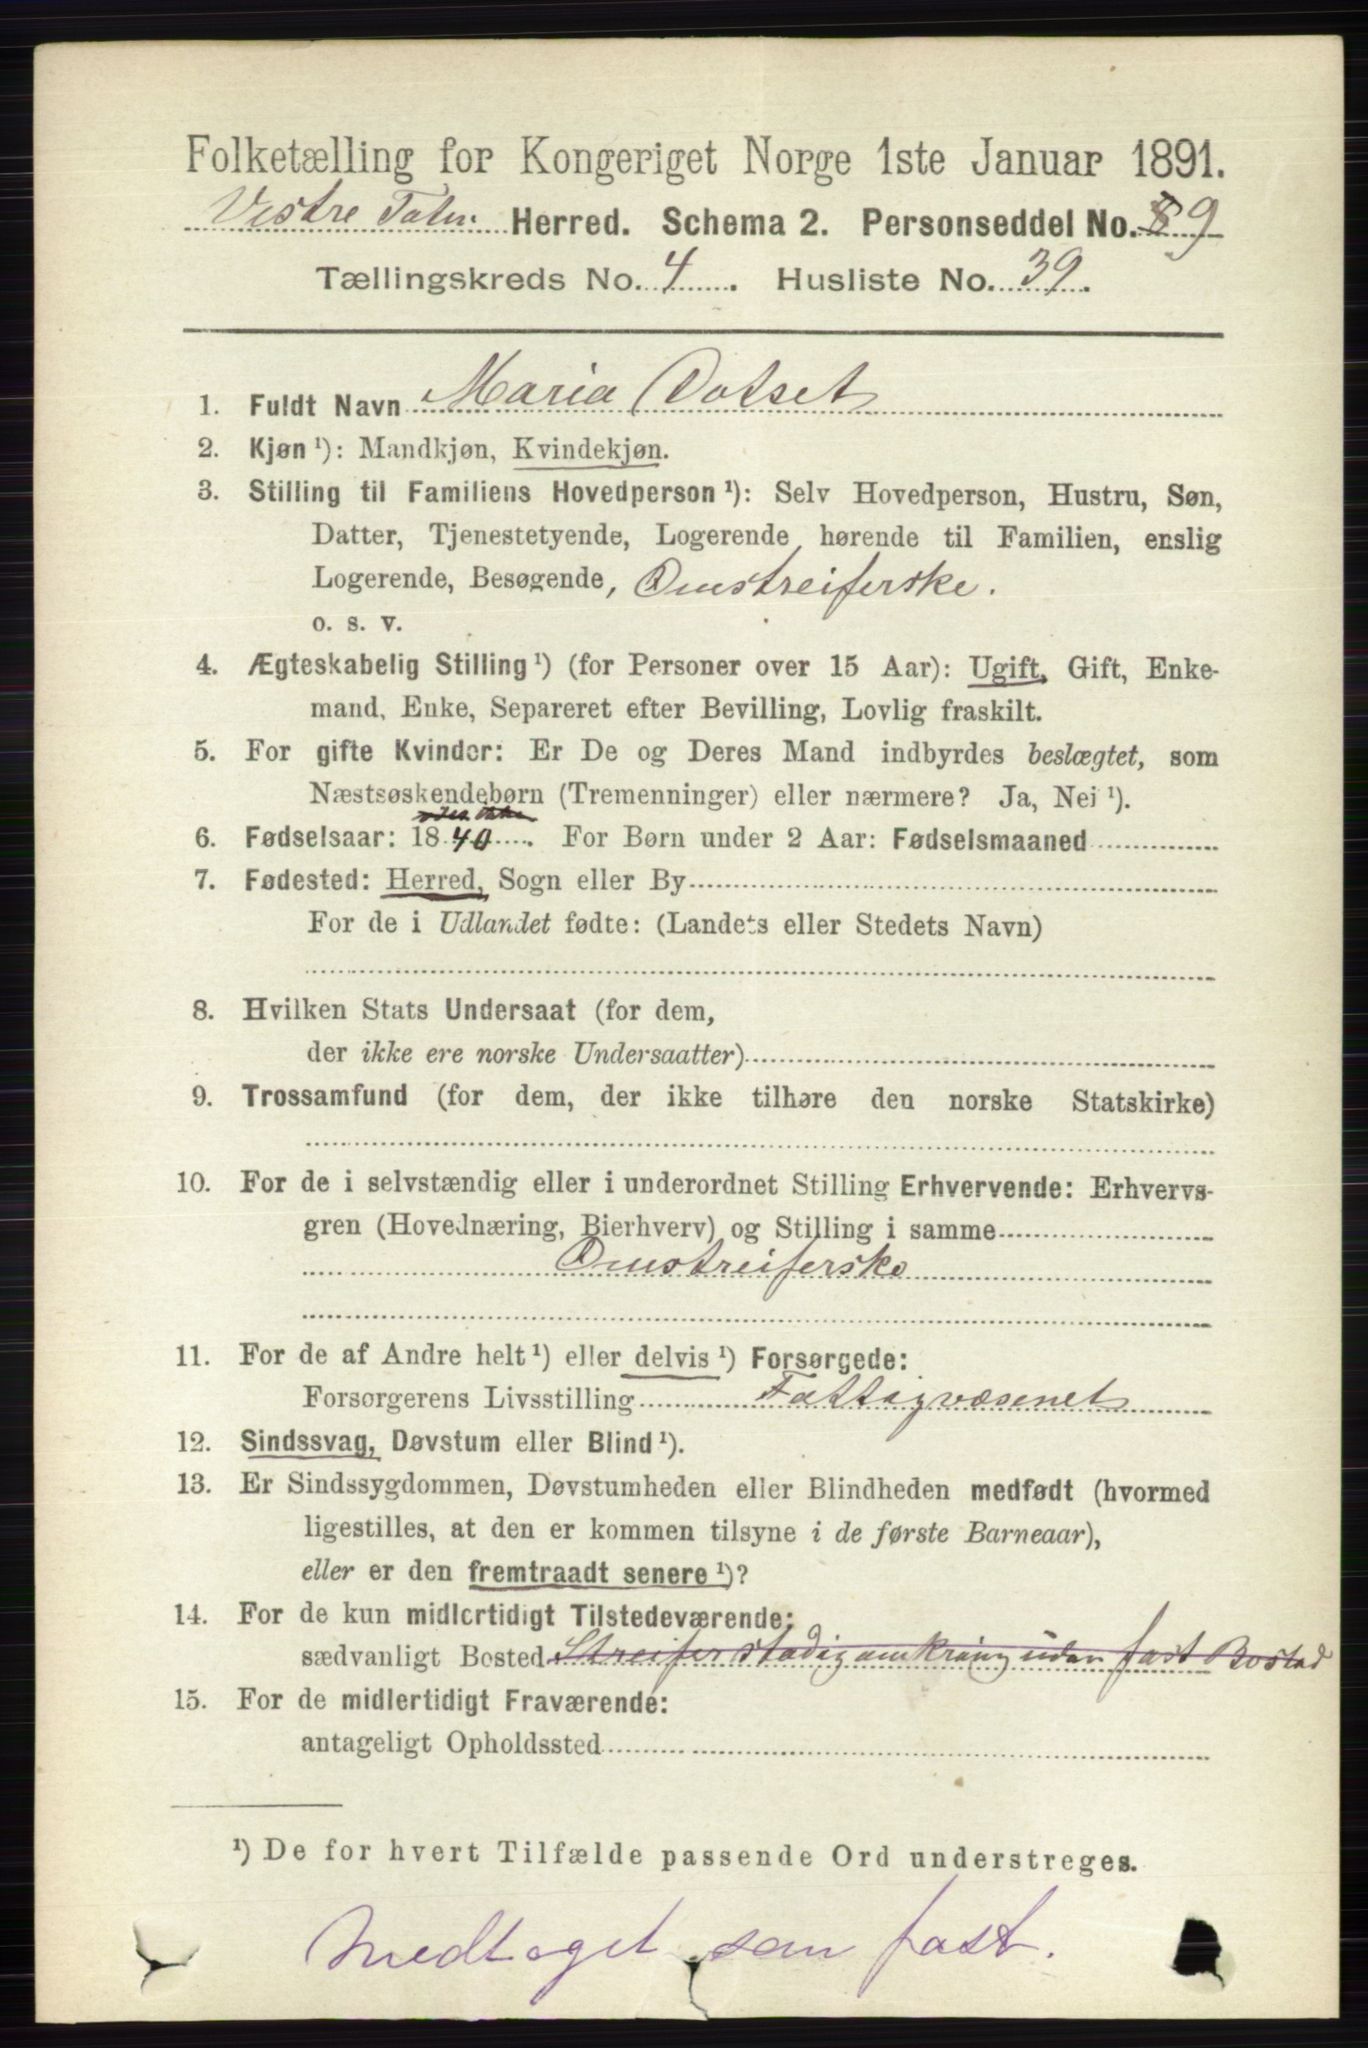 Folketælling for Kongeriget Norge 1ste Januar 1891.
Vestre Toten Herred. Schema 2. Personseddel No. 9
Tællingskreds No. 4. Husliste No. 39.
1. Fuldt Navn Maria Dotset
2. Kjøn ¹): Mandkjøn, Kvindekjøn.
3. Stilling til Familiens Hovedperson ¹): Selv Hovedperson, Hustru, Søn,
Datter, Tjenestetyende, Logerende hørende til Familien, enslig
Logerende, Besøgende, Omstreiferske.
o. s. v.
4. Ægteskabelig Stilling ¹) (for Personer over 15 Aar): Ugift, Gift, Enke-
mand, Enke, Separeret efter Bevilling, Lovlig fraskilt.
5. For gifte Kvinder: Er De og Deres Mand indbyrdes beslægtet, som
Næstsøskendebørn (Tremenninger) eller nærmere? Ja, Nei ¹).
6. Fødselsaar: 1840. For Børn under 2 Aar: Fødselsmaaned
7. Fødested: Herred, Sogn eller By
For de i Udlandet fødte: (Landets eller Stedets Navn)
8. Hvilken Stats Undersaat (for dem,
der ikke ere norske Undersaatter)
9. Trossamfund (for dem, der ikke tilhøre den norske Statskirke)
10. For de i selvstændig eller i underordnet Stilling Erhvervende: Erhvervs-
gren (Hovednæring, Bierhverv) og Stilling i samme
Omstreiferske
11. For de af Andre helt ¹) eller delvis ¹) Forsørgede:
Forsørgerens Livsstilling Fattigvæsenet
12. Sindssvag, Døvstum eller Blind ¹).
13. Er Sindssygdommen, Døvstumheden eller Blindheden medfødt (hvormed
ligestilles, at den er kommen tilsyne i de første Barneaar),
eller er den fremtraadt senere ¹)?
14. For de kun midlertidigt Tilstedeværende:
sædvanligt Bosted Streifer stadig omkring uden fast Bostad
15. For de midlertidigt Fraværende:
antageligt Opholdssted
¹) De for hvert Tilfælde passende Ord understreges.
Medtaget som fast.